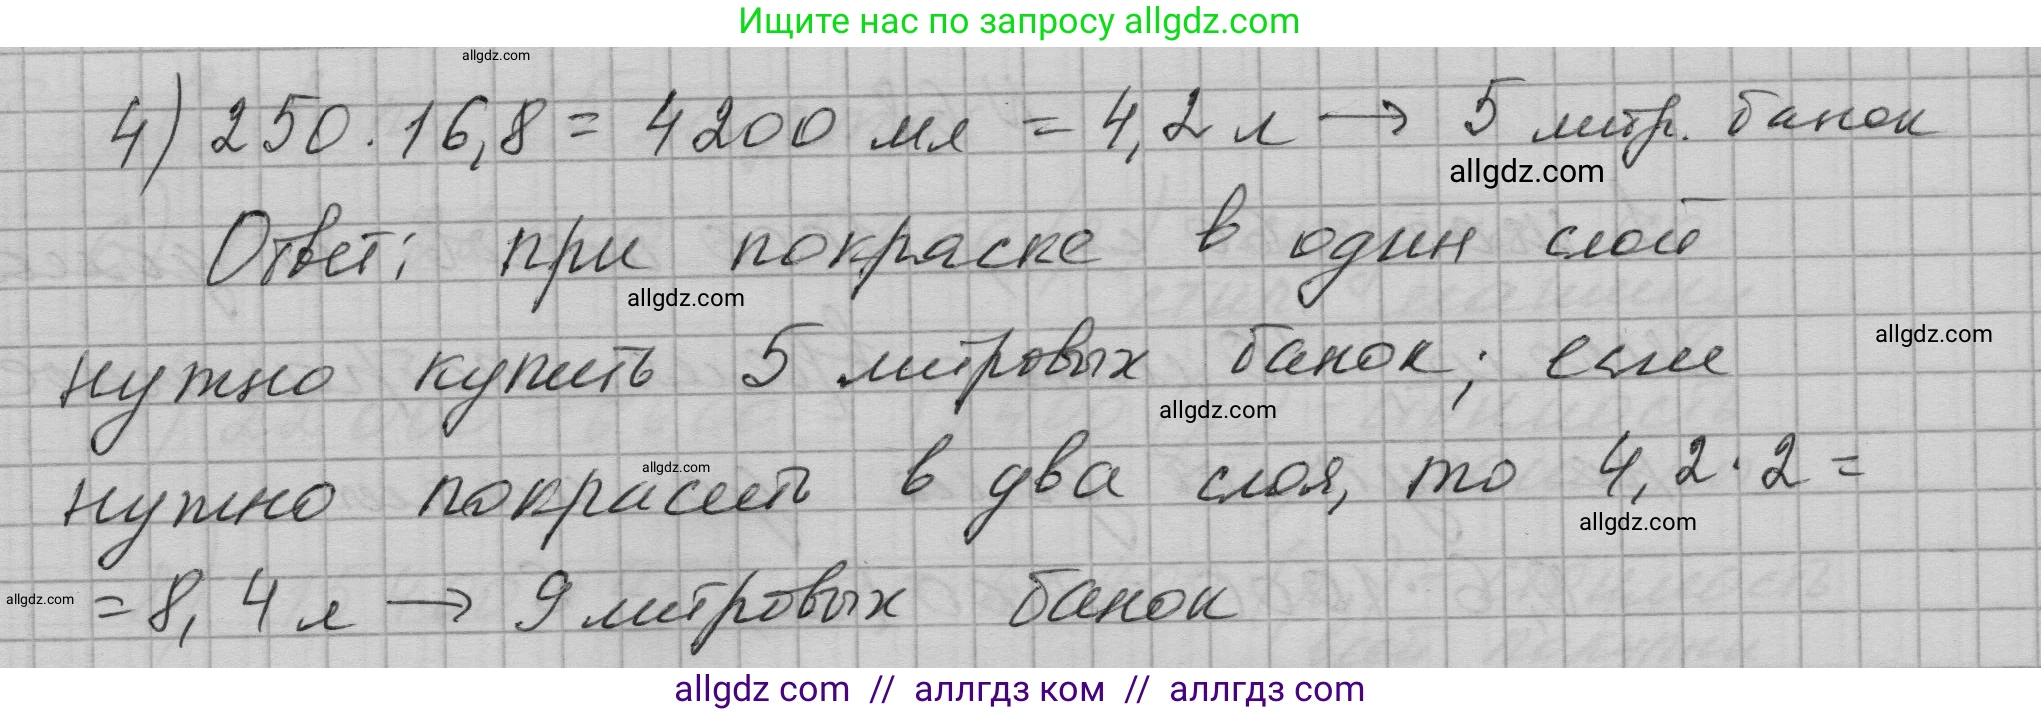 Ищите нас по запросу allgdz.com
allgdz.com
4) 250 · 16,8 = 4200 мл = 4,2 л → 5 литр. банок
allgdz.com
Ответ: при покраске в один слой
allgdz.com
нужно купить 5 литровых банок; если
allgdz.com
allgdz.com
нужно покрасить в два слоя, то 4,2 · 2 =
allgdz.com
allgdz.com
= 8,4 л → 9 литровых банок
allgdz.com
allgdz com // аллгдз ком // аллгдз com